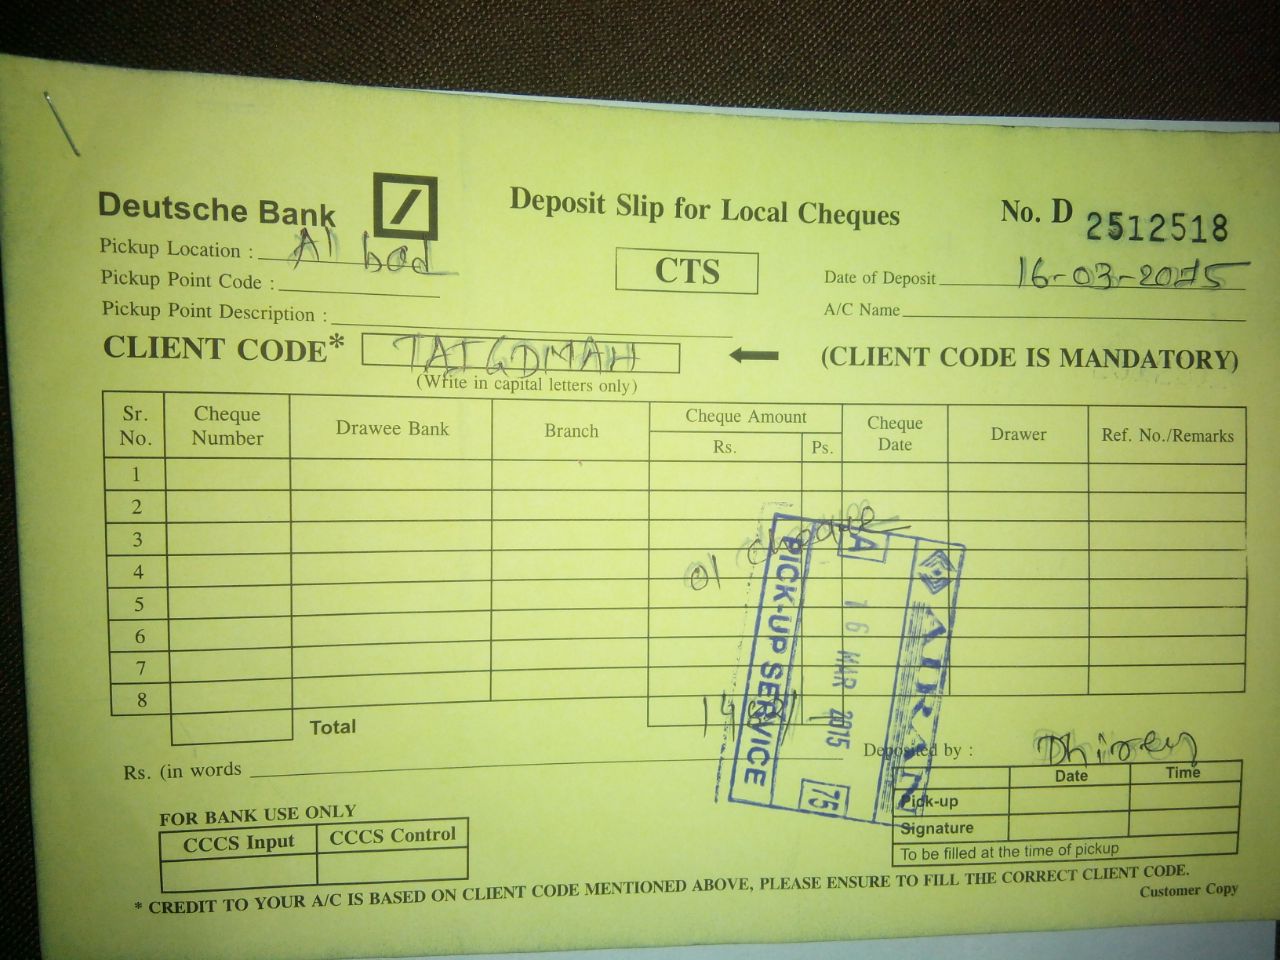 Deutsche Bank
Deposit Slip for Local Cheques
No. D 2512518
Pickup Location : A'bad
CTS
Date of Deposit 16-03-2015
Pickup Point Code :
A/C Name
Pickup Point Description :
CLIENT CODE* TAIGDMAH
(CLIENT CODE IS MANDATORY)
(Write in capital letters only)
Sr. No. Cheque Number Drawee Bank Branch Cheque Amount Rs. Ps. Cheque Date Drawer Ref. No./Remarks
1
2
3
4
5
6
7
8
01 cheque
Total
A
16 MAR 2015
75
PICK-UP SERVICE
AIRAN
Rs. (in words
Deposited by :
Date Time
Pick-up
Signature
To be filled at the time of pickup
FOR BANK USE ONLY
CCCS Input CCCS Control
* CREDIT TO YOUR A/C IS BASED ON CLIENT CODE MENTIONED ABOVE, PLEASE ENSURE TO FILL THE CORRECT CLIENT CODE.
Customer Copy